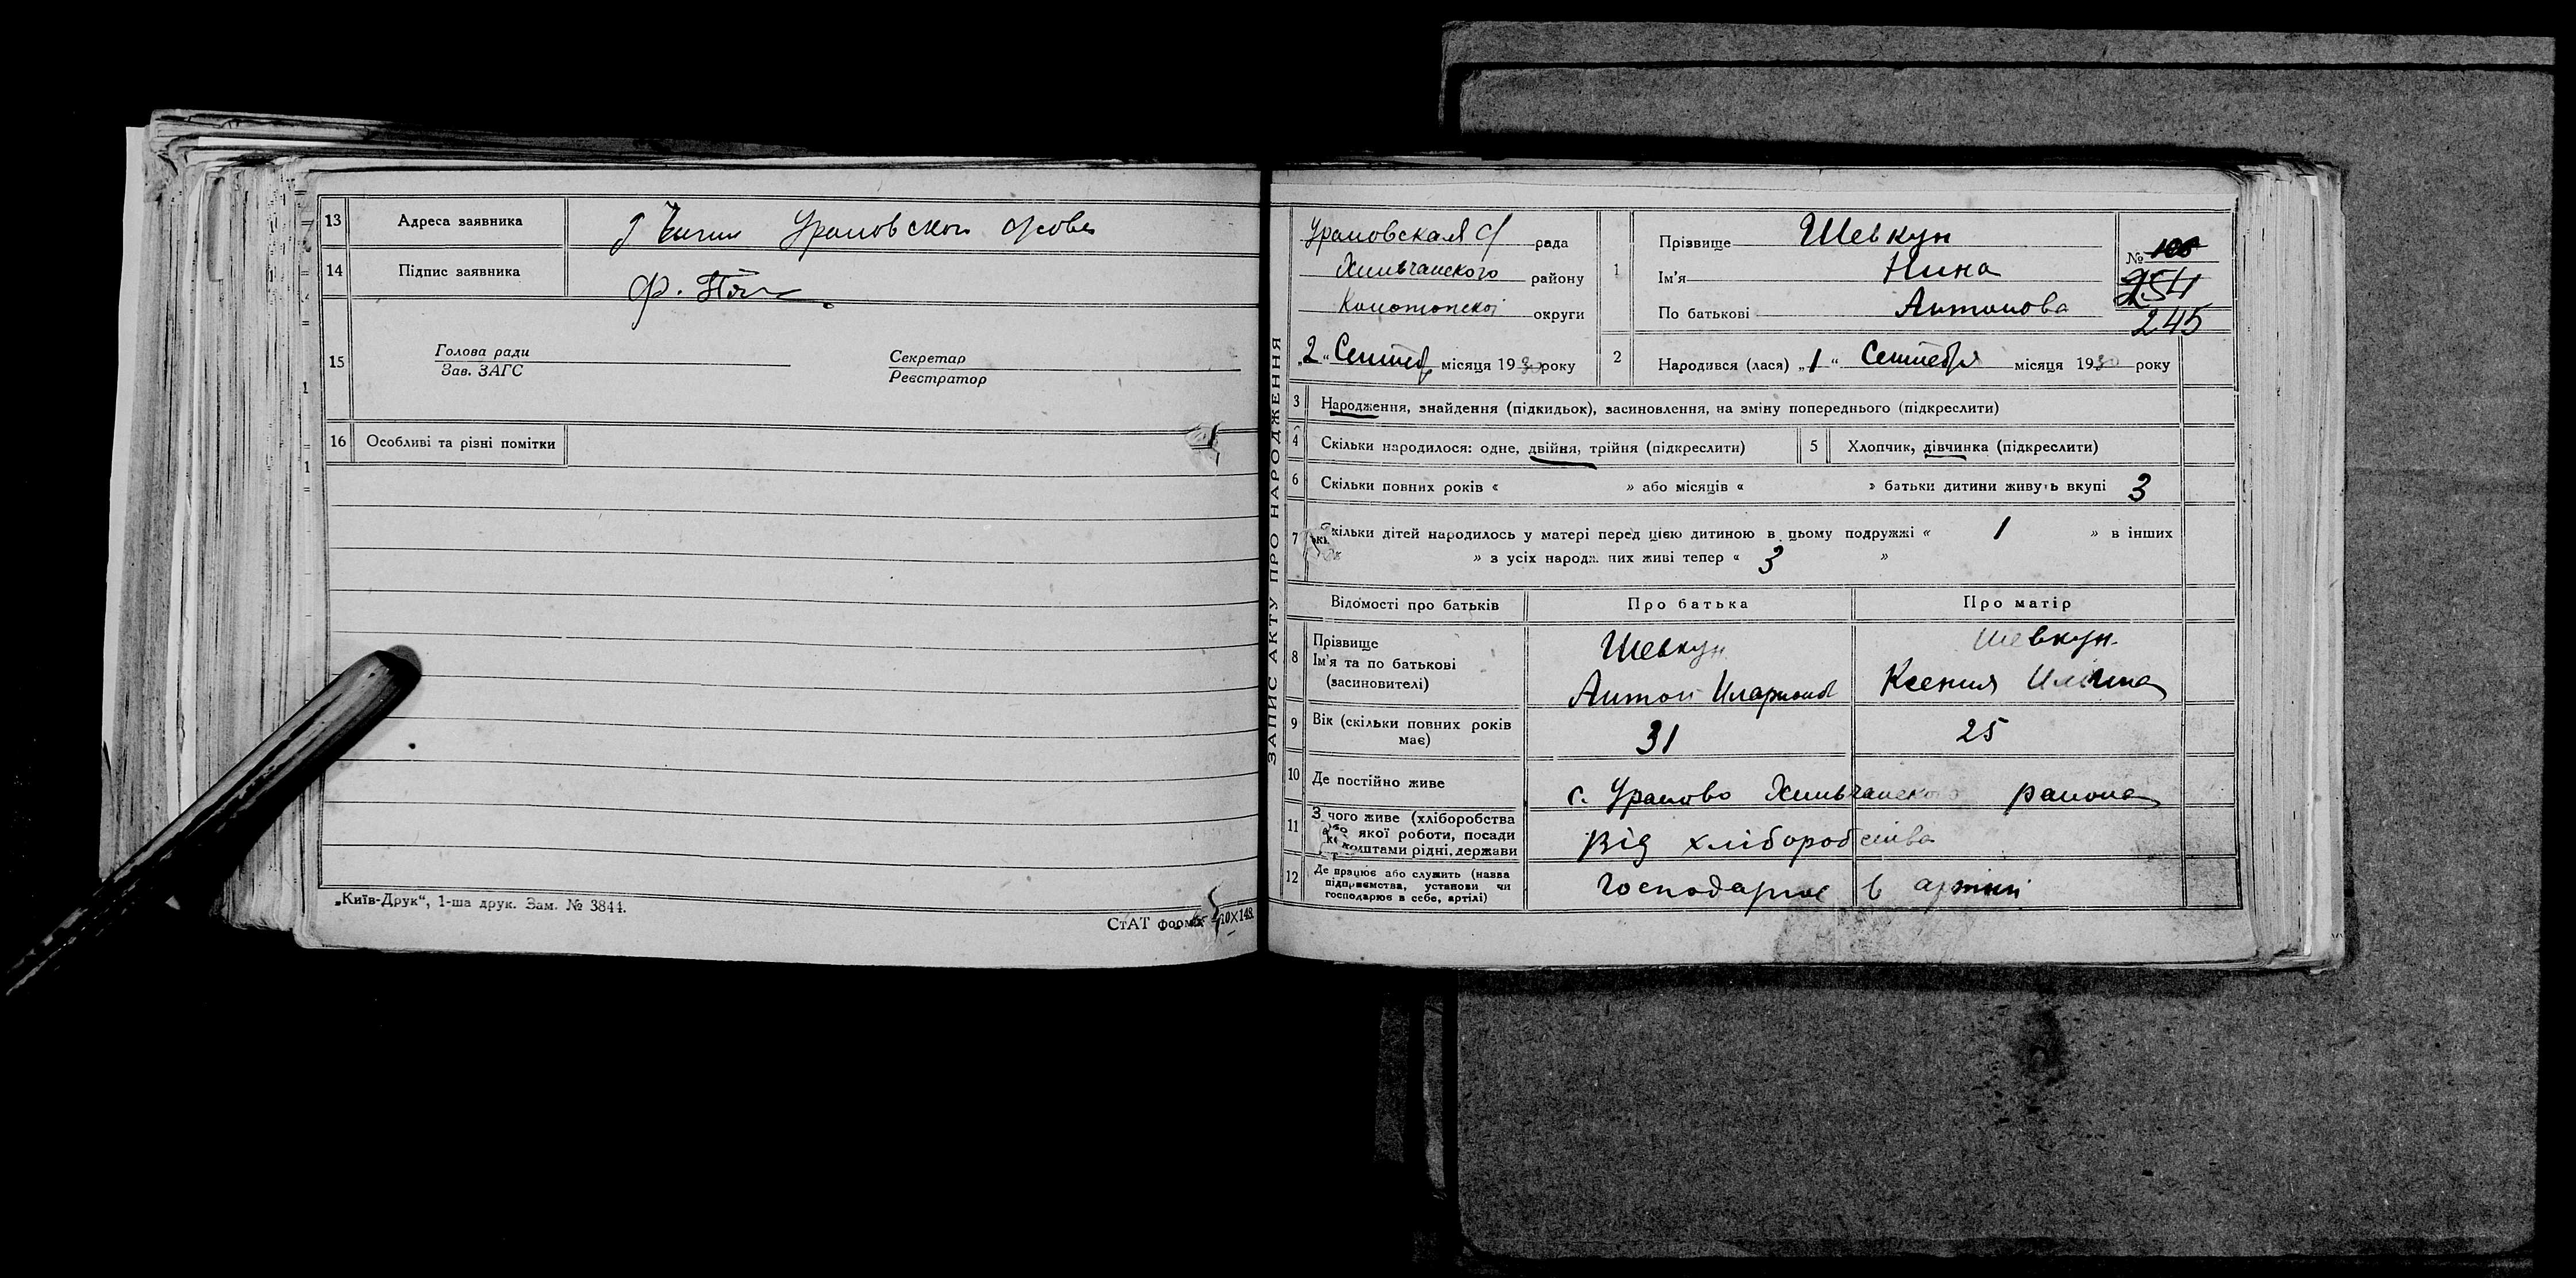 13 Адреса заявника Урамовской
14 Підпис заявника Ф.
15 Голова ради Секретар
Зав. ЗАГС Реєстратор
16 Особливі та різні помітки
„Київ-Друк“, 1-ша друк. Зам. № 3844.
СтАТ форма 10X148.
ЗАПИС АКТУ ПРО НАРОДЖЕННЯ
Урамовская с/ рада
Хильчанского району
Конотопской округи
„2“ Сентяб місяця 1930 року
1 Прізвище Шевкун
Ім'я Нина
По батькові Антонова
№ 108
254
245
2 Народився (лася) „1“ Сентебря місяця 1930 року
3 Народження, знайдення (підкидьок), засиновлення, на зміну попереднього (підкреслити)
4 Скільки народилося: одне, двійня, трійня (підкреслити) 5 Хлопчик, дівчинка (підкреслити)
6 Скільки повних років « » або місяців « » батьки дитини живуть вкупі 3
7 Скільки дітей народилось у матері перед цією дитиною в цьому подружжі « 1 » в інших
» з усіх народж. них живі тепер « 3 »
Відомості про батьків Про батька Про матір
8 Прізвище Шевкун Шевкун
Ім'я та по батькові
(засиновителі) Антон Иларионов Ксения
9 Вік (скільки повних років має) 31 25
10 Де постійно живе с. Урамово Хильчанского района
11 З чого живе (хліборобства
якої роботи, посади
коштами рідні, держави Від хліборобства
12 Де працює або служить (назва
підприємства, установи чи
господарює в себе, артілі) Господарює в артилі